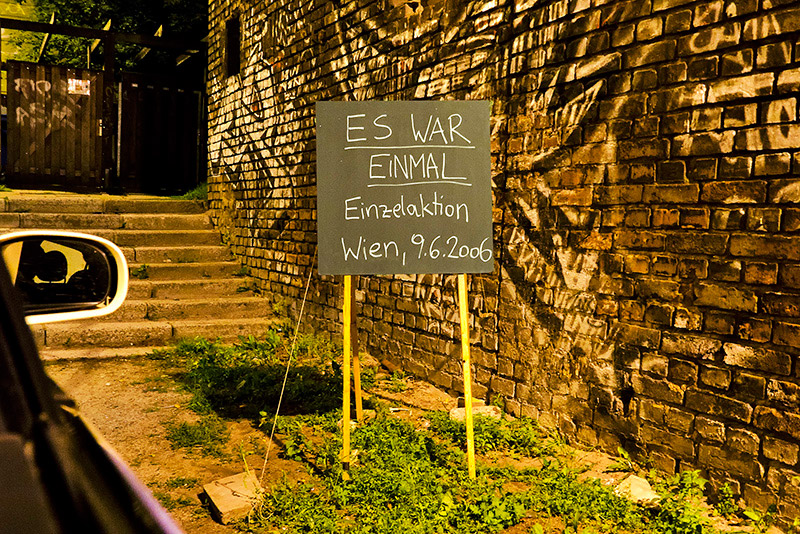 ES WAR
EINMAL
Einzelaktion
Wien, 9.6.2006